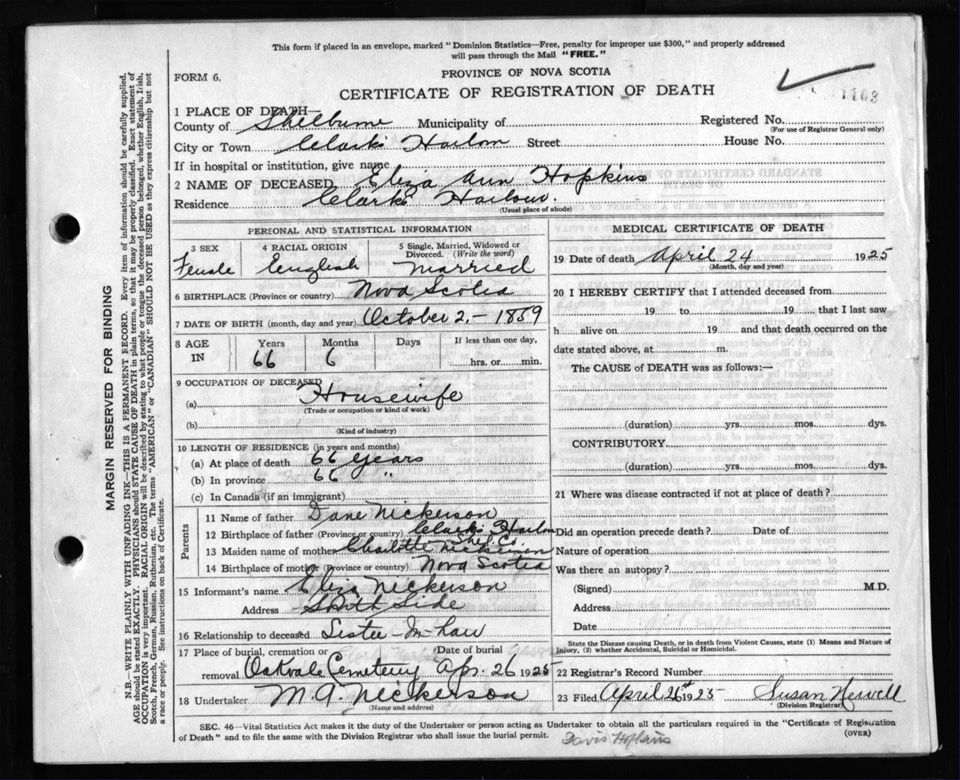 This form if placed in an envelope, marked "Dominion Statistics—Free, penalty for improper use $300," and properly addressed
will pass through the Mail "FREE."
FORM 6.
PROVINCE OF NOVA SCOTIA
CERTIFICATE OF REGISTRATION OF DEATH
1163
1 PLACE OF DEATH—
County of Shelburne Municipality of Registered No.
(For use of Registrar General only)
City or Town Clark's Harbor Street House No.
If in hospital or institution, give name
2 NAME OF DECEASED Eliza Ann Hopkins
Residence Clark's Harbour.
(Usual place of abode)
PERSONAL AND STATISTICAL INFORMATION
3 SEX
Female
4 RACIAL ORIGIN
English
5 Single, Married, Widowed or
Divorced. (Write the word)
Married
6 BIRTHPLACE (Province or country) Nova Scotia
7 DATE OF BIRTH (month, day and year) October 2,- 1859
8 AGE
IN
Years
66
Months
6
Days
If less than one day,
hrs. or min.
9 OCCUPATION OF DECEASED
(a) Housewife
(Trade or occupation or kind of work)
(b)
(Kind of industry)
10 LENGTH OF RESIDENCE (in years and months)
(a) At place of death 66 years
(b) In province 66 "
(c) In Canada (if an immigrant)
Parents
11 Name of father Dane Nickerson
12 Birthplace of father (Province or country) Clark's Harbor
Shel. Co.
13 Maiden name of mother Charlotte Nickerson
14 Birthplace of mother (Province or country) Nova Scotia
15 Informant's name Eliz Nickerson
Address South Side
16 Relationship to deceased Sister-In-law
17 Place of burial, cremation or Date of burial
removal Oakvale Cemetery Apr. 26 1925
18 Undertaker M.A. Nickerson
(Name and address)
MEDICAL CERTIFICATE OF DEATH
19 Date of death April 24 1925
(Month, day and year)
20 I HEREBY CERTIFY that I attended deceased from
19 to 19 that I last saw
h alive on 19 and that death occurred on the
date stated above, at m.
The CAUSE of DEATH was as follows:—
(duration) yrs. mos. dys.
CONTRIBUTORY
(duration) yrs. mos. dys.
21 Where was disease contracted if not at place of death?
Did an operation precede death? Date of
Nature of operation
Was there an autopsy?
(Signed) M.D.
Address
Date
State the Disease causing Death, or in death from Violent Causes, state (1) Means and Nature of
Injury, (2) whether Accidental, Suicidal or Homicidal.
22 Registrar's Record Number
23 Filed April 26th 1925 Susan Newell
(Division Registrar)
SEC. 46—Vital Statistics Act makes it the duty of the Undertaker or person acting as Undertaker to obtain all the particulars required in the "Certificate of Registration
of Death" and to file the same with the Division Registrar who shall issue the burial permit.
(OVER)
Davis Hopkins
MARGIN RESERVED FOR BINDING
N.B.—WRITE PLAINLY WITH UNFADING INK—THIS IS A PERMANENT RECORD. Every item of information should be carefully supplied.
AGE should be stated EXACTLY. PHYSICIANS should STATE CAUSE OF DEATH in plain terms, so that it may be properly classified. Exact statement of
OCCUPATION is very important. RACIAL ORIGIN will be described by stating to what people or tongue the deceased person belonged, whether English, Irish,
Scotch, French, German, Russian, Ruthenian, etc. The terms "AMERICAN" or "CANADIAN" SHOULD NOT BE USED as they express citizenship but not
a race or people. See instructions on back of Certificate.